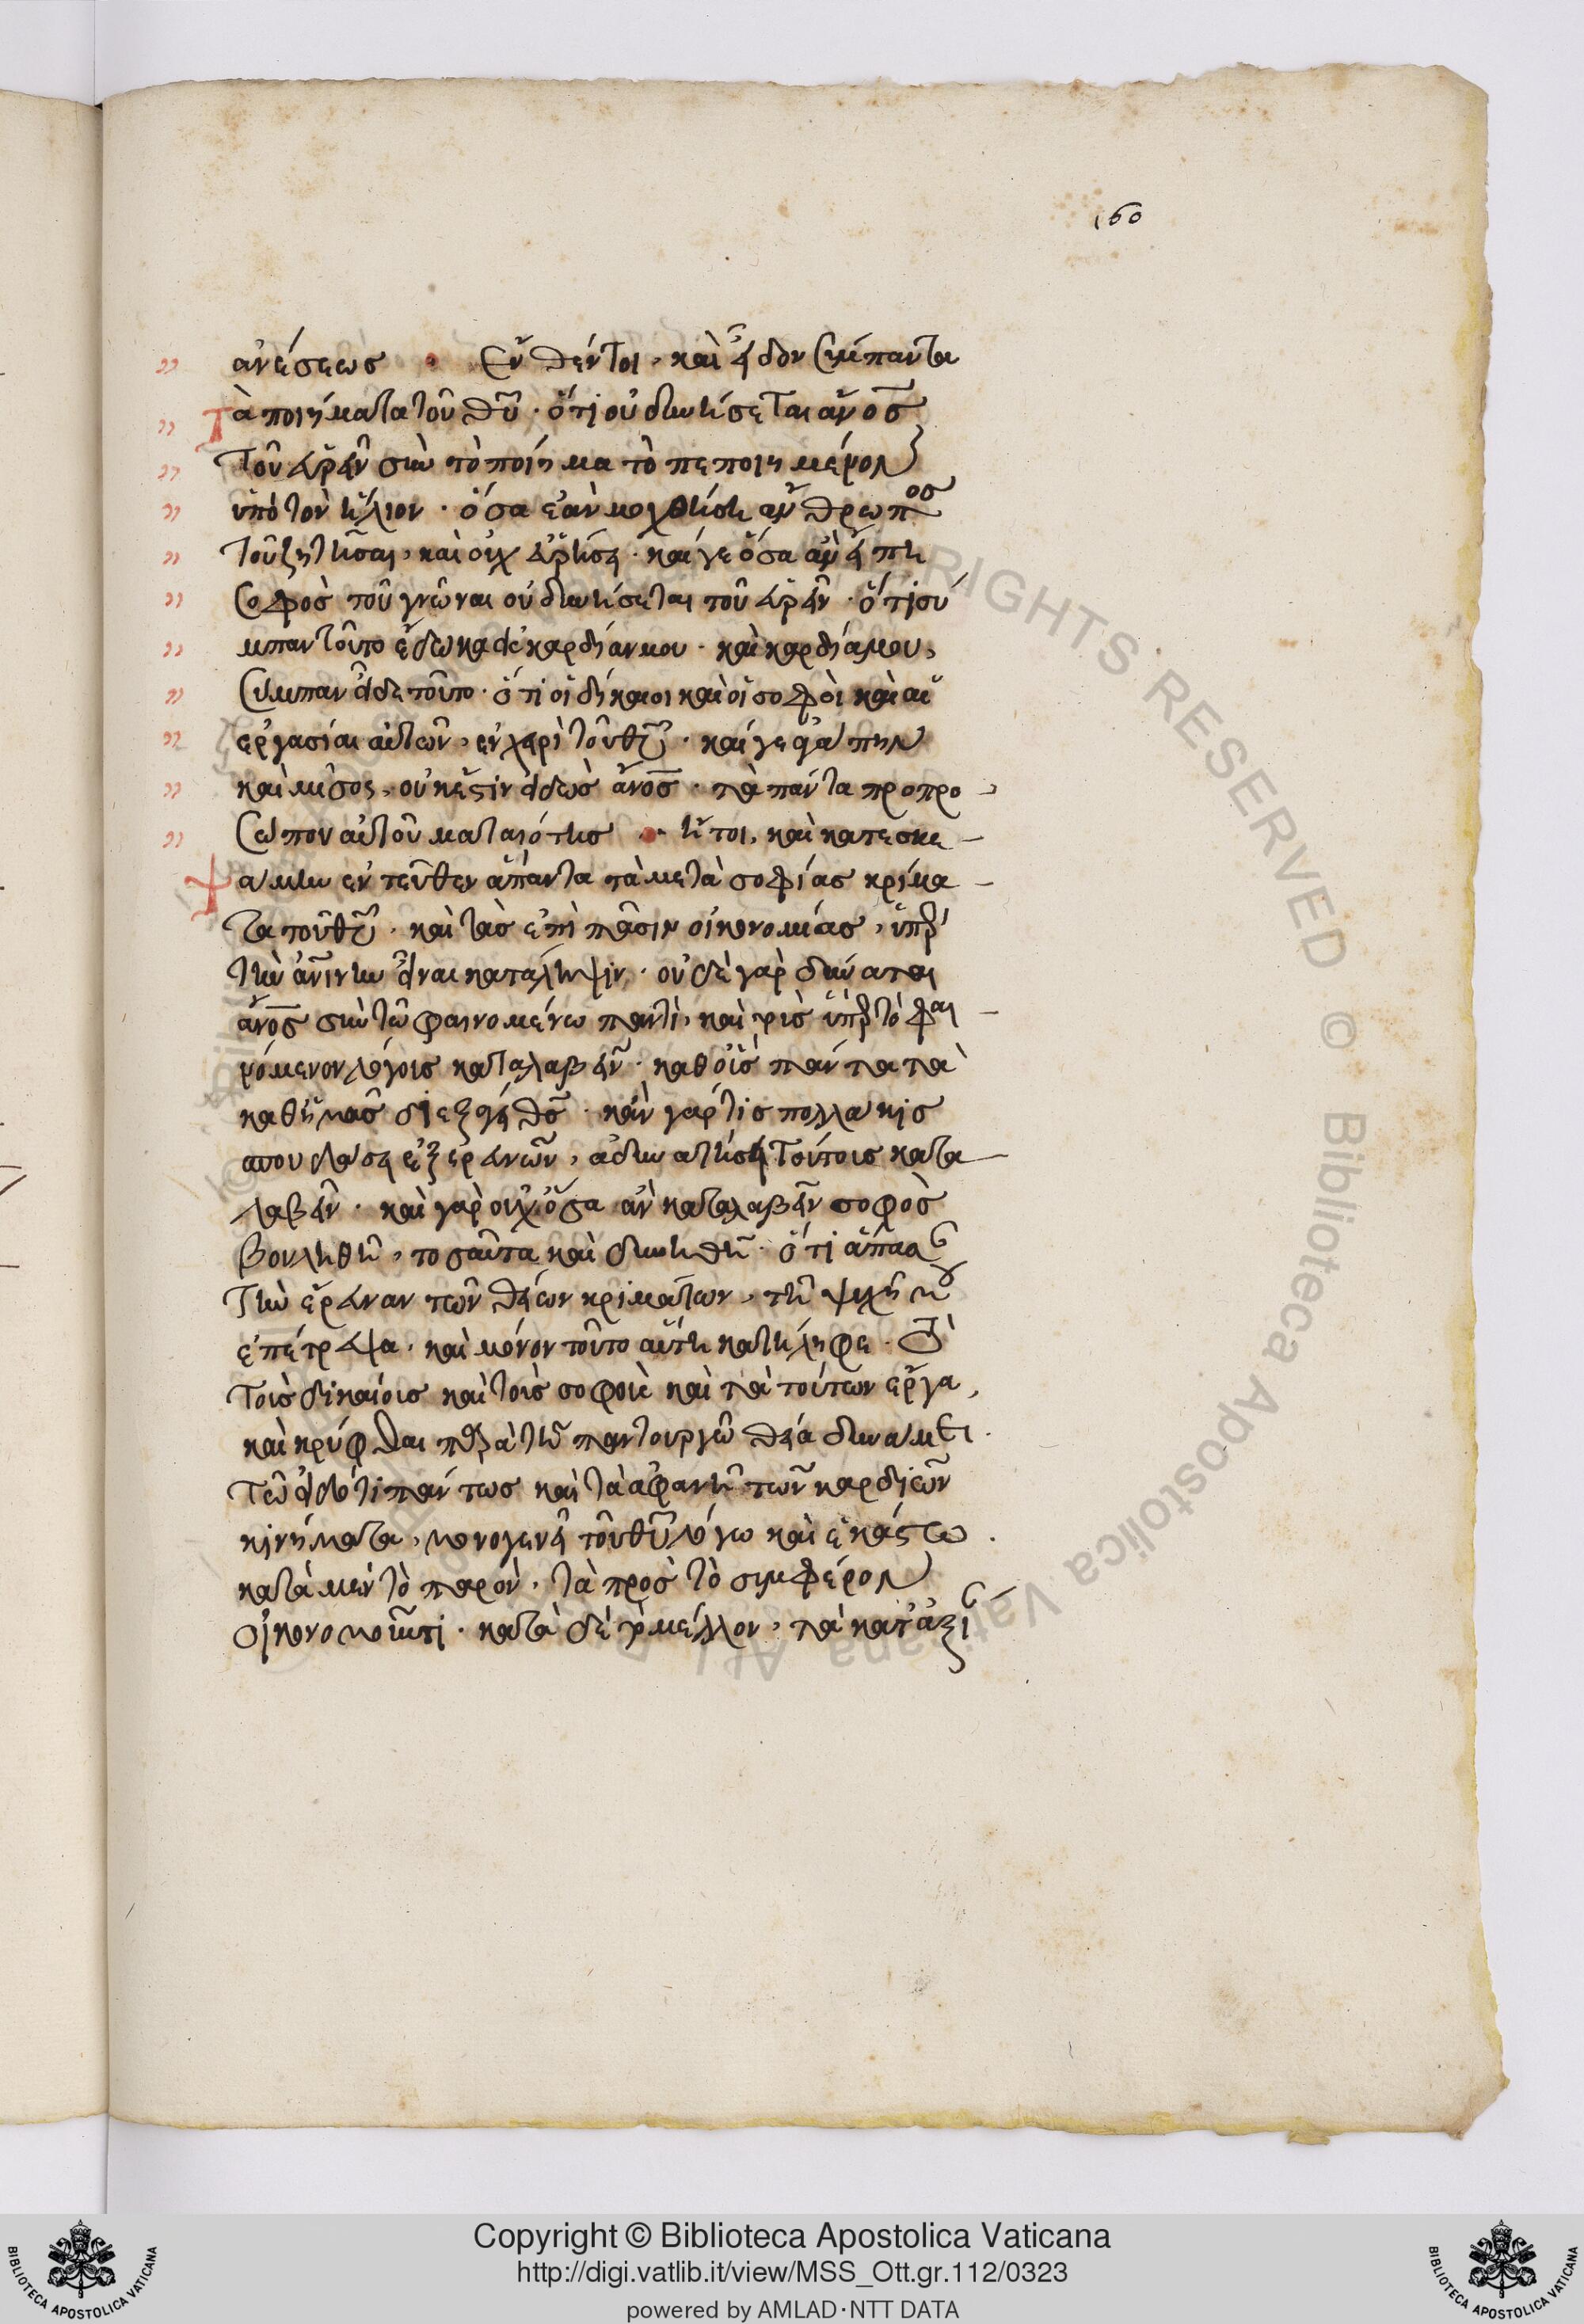 160
ἀνέσεως · Ἐνθέντοι, καὶ εἶδον σύμπαντα
τὰ ποιήματα τοῦ θῦ · ὅτι οὐ δυνήσεται ἄνος
τοῦ εὑρεῖν σὺν τὸ ποίημα τὸ πεποιημένον
ὑπὸ τὸν ἥλιον · ὅσα ἐὰν μοχθήση ἄνθρωπος
τοῦ ζητῆσαι, καὶ οὐχ εὑρήσει · καί γε ὅσα ἂν εἴπη
σοφὸς τοῦ γνῶναι οὐ δυνήσεται τοῦ εὑρεῖν · ὅτι σύ
μπαν τοῦτο ἔδωκα εἰς καρδίαν μου · καὶ καρδία μου,
σύμπαν εἶδε τοῦτο · ὅτι οἱ δίκαιοι καὶ οἱ σοφοὶ καὶ αἱ
ἐργασίαι αὐτῶν, ἐν χειρὶ τοῦ θῦ · καί γε ἀγάπην
καὶ μῖσος, οὐκ ἔστιν εἰδὼς ἄνος · τὰ πάντα πρὸ προ
σώπου αὐτοῦ ματαιότης · ἤτοι, καὶ κατεσκε
ψάμην ἐντεῦθεν ἅπαντα τὰ μετὰ σοφίας κρίμα
τα τοῦ θῦ · καὶ τὰς ἐπὶ πᾶσιν οἰκονομίας, ὑπὲρ
τὴν ἀνίνην εἶναι κατάληψιν · οὐδὲ γὰρ δύναται
ἄνος σὺν τῷ φαινομένω παντὶ, καὶ τοὺς ὑπὲρ τὸ φαι
νόμενον λόγοις καταλαβεῖν · καθ οἷς πάντα τὰ
καθ ἡμᾶς διεξάγει θς · κἂν γάρ τις πολλακις
σπουδάσει ἐξερευνῶν, ἀδυνατήσει τούτοις κατα
λαβεῖν · καὶ γὰρ οὐχ ὅσα ἂν καταλαβεῖν σοφὸς
βουληθῆ, τοσαῦτα καὶ δυνηθῆ · ὅτι ἅπασαν
τὴν ἔρευναν τῶν θείων κριμάτων, τῆ ψυχῆ μου
ἐπέτρεψα · καὶ μόνον τοῦτο αὕτη κατείληφε · τὸ
τοῖς δικαίοις καὶ τοῖς σοφοῖς καὶ τὰ τούτων ἔργα,
καὶ κρύφθαι παρὰ τῆ παντουργῶ θεία δυνάμει ·
τῶ εἰδότι πάντως καὶ τὰ ἀφανῆ τῶν καρδιῶν
κινήματα, μονογενεῖ τοῦ θῦ λόγω καὶ ἑκάστω ·
κατὰ μὲν τὸ παρὸν, τὰ πρὸς τὸ συμφέρον
οἰκονομοῦντι · κατὰ δὲ τὸ μέλλον, τὰ κατ ἀξί
Copyright © Biblioteca Apostolica Vaticana
http://digi.vatlib.it/view/MSS_Ott.gr.112/0323
powered by AMLAD·NTT DATA